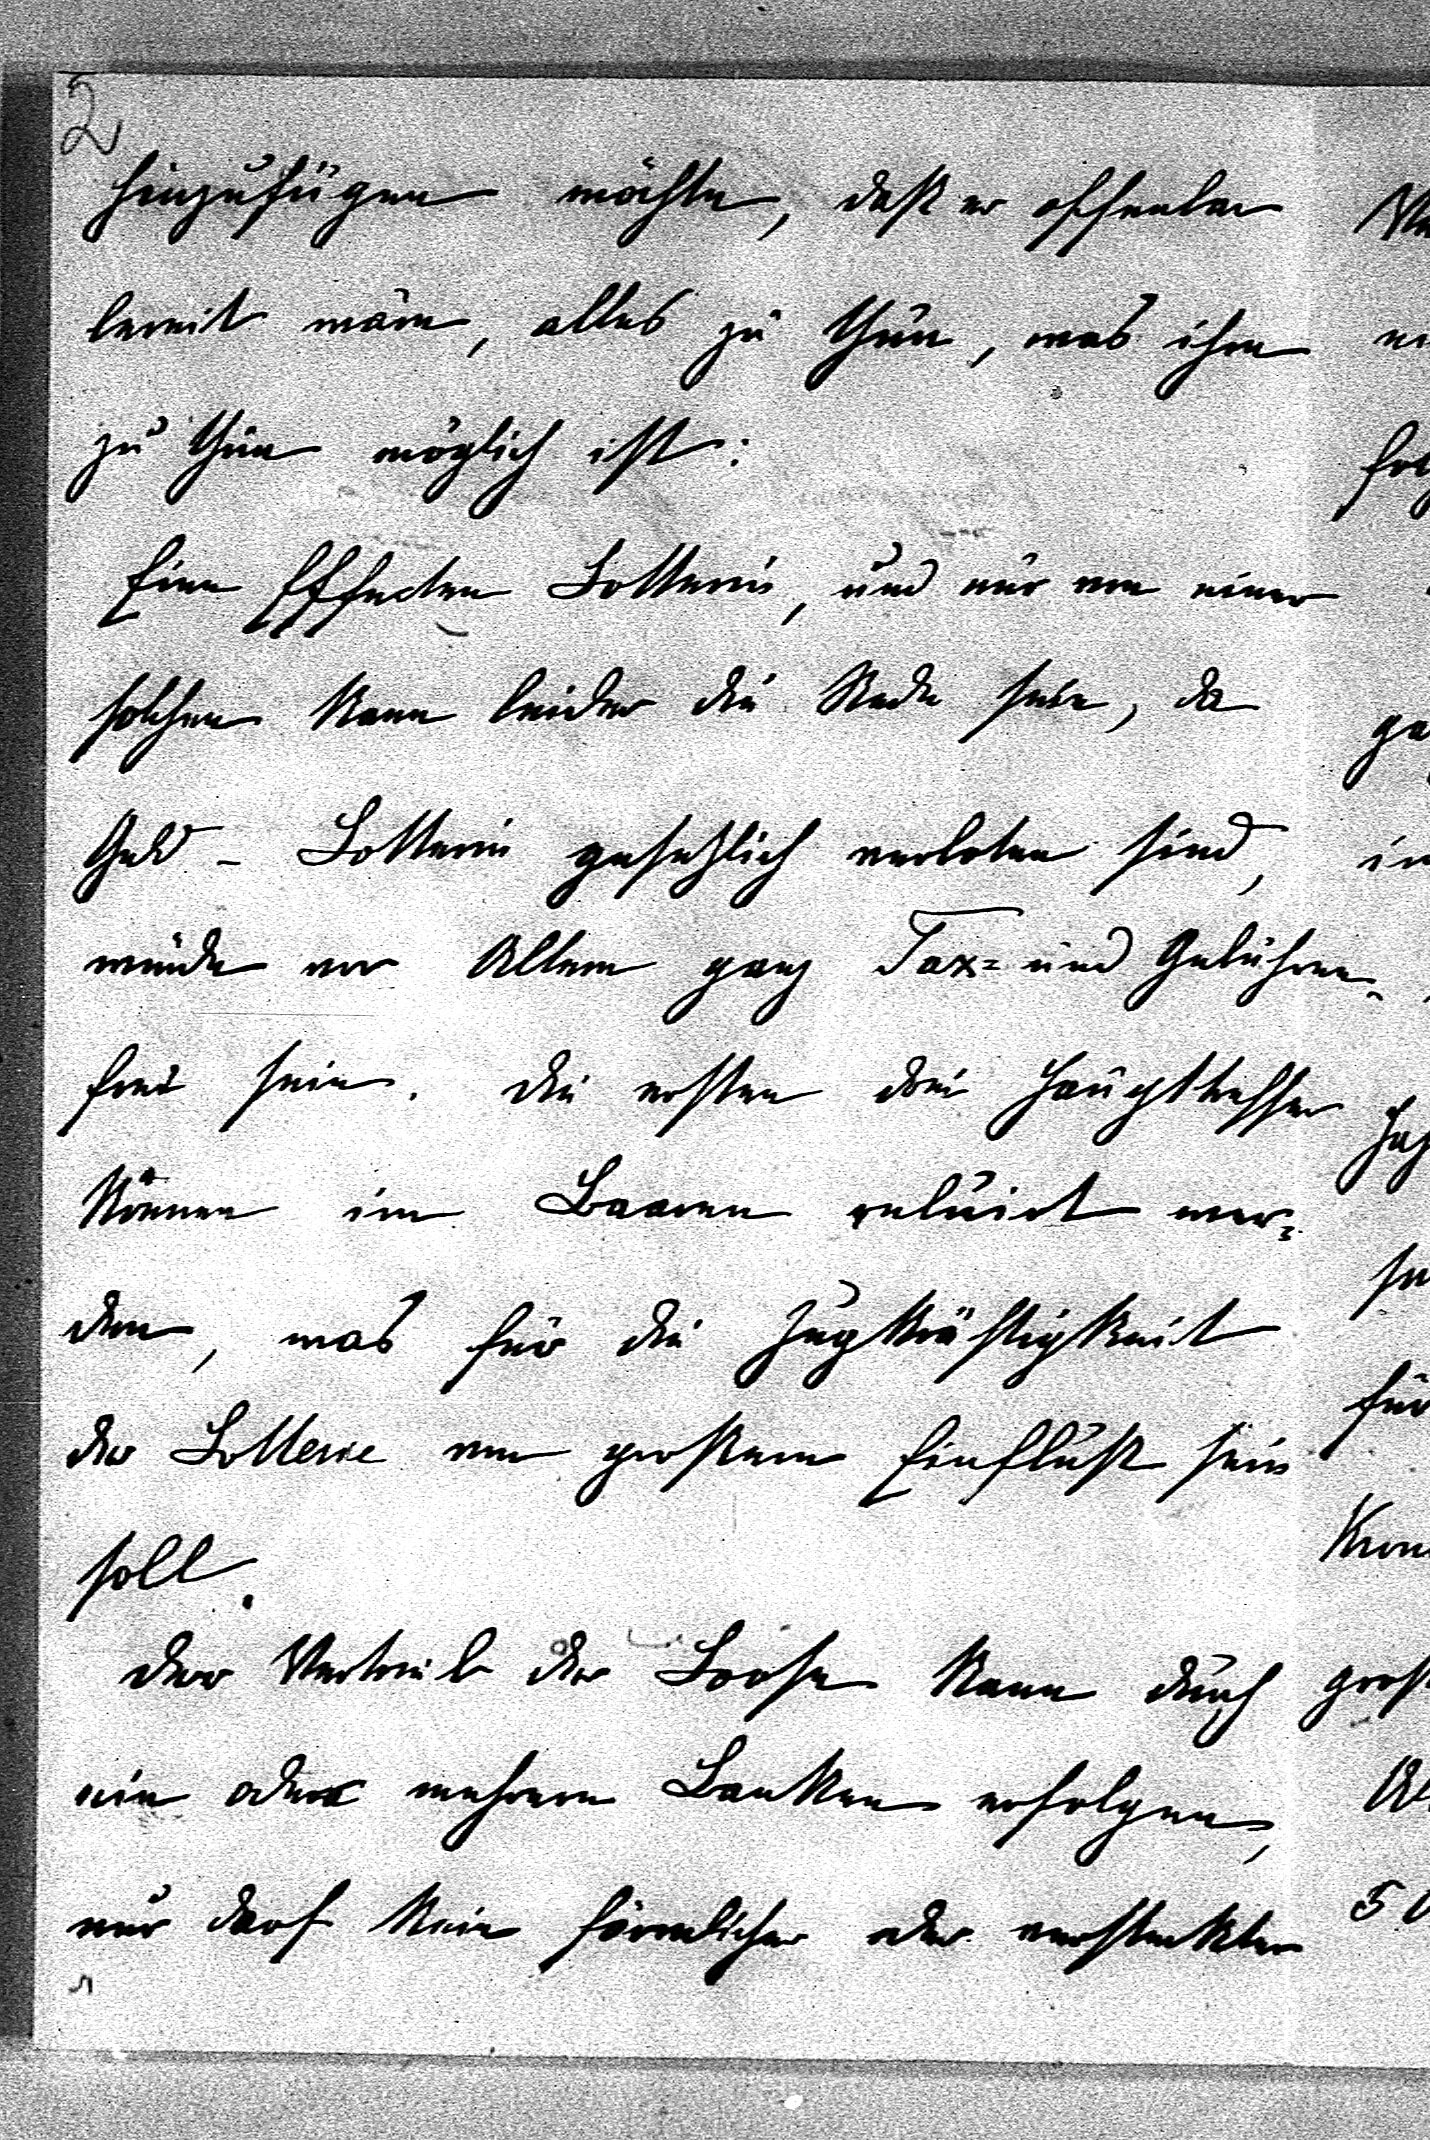 2
hinzufügen möchte, daß er offenbar
bereit wäre, alles zu thun, was ihm
zu thun möglich ist:
Eine Effecten Lotterie, und nur von einer
solchen kann leider die Rede sein, da
Geld - Lotterie gesetzlich verboten sind,
würde vor Allem ganz Tax= und Gebühren-
frei sein. Die ersten drei Haupttreffer
können im Baaren reluirt wer=
den, was für die Zugkräftigkeit
der Lotterie von großem Einfluß sein
soll.
Der Vertrieb der Loose kann durch
ein oder mehrere Banken erfolgen,
nur darf kein förmlicher oder versteckter